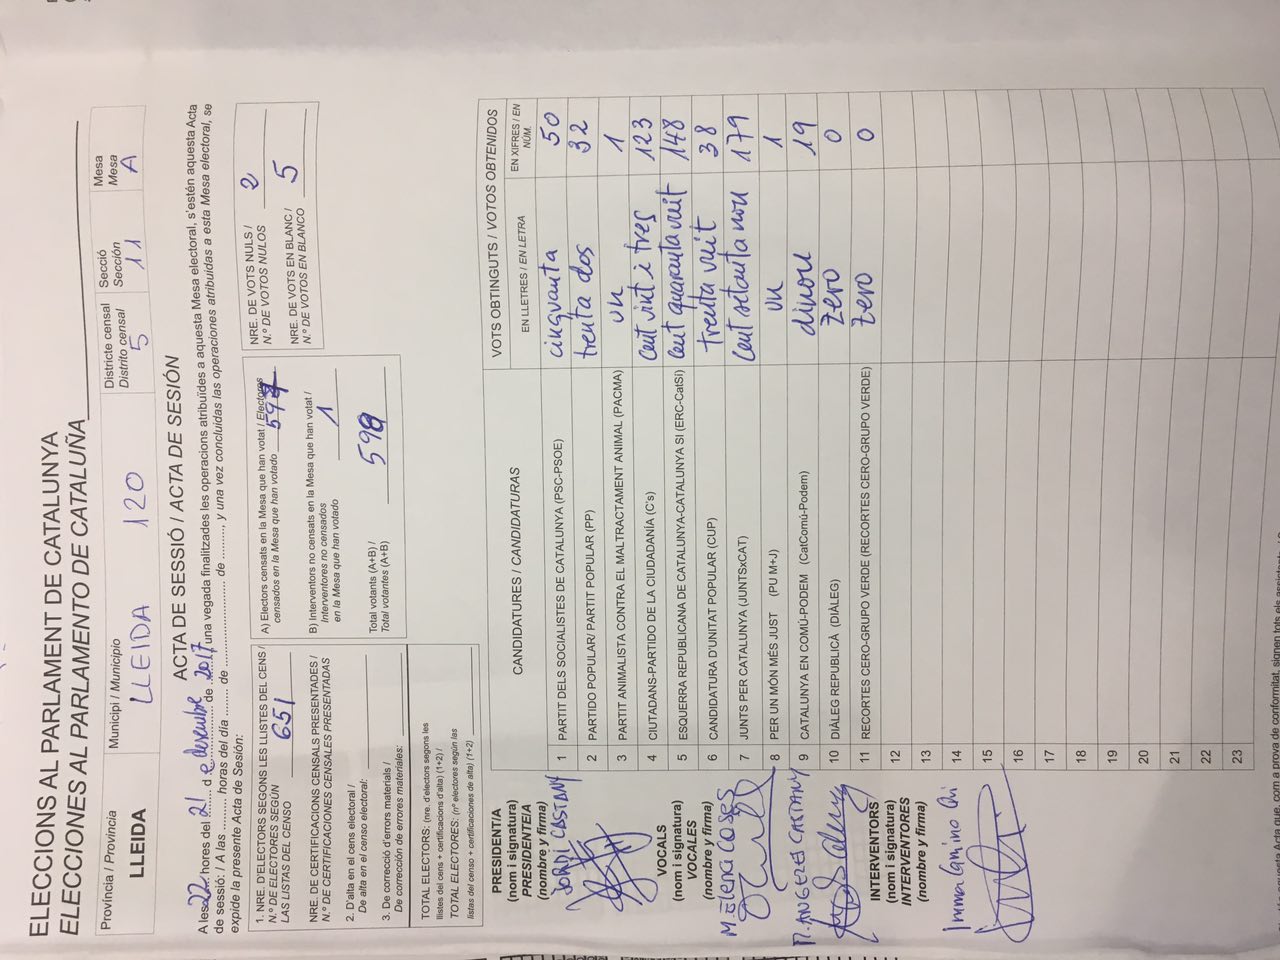 ELECCIONS AL PARLAMENT DE CATALUNYA
ELECCIONES AL PARLAMENTO DE CATALUÑA
Província / Provincia
LLEIDA
Municipi / Municipio
LLEIDA 120
Districte censal
Distrito censal
5
Secció
Sección
11
Mesa
Mesa
A
ACTA DE SESSIÓ / ACTA DE SESIÓN
A les 22 hores del 21 d e desembre de 2017, una vegada finalitzades les operacions atribuïdes a aquesta Mesa electoral, s'estén aquesta Acta
de sessió: / A las horas del día de de , y una vez concluidas las operaciones atribuidas a esta Mesa electoral, se
expide la presente Acta de Sesión:
1. NRE. D'ELECTORS SEGONS LES LLISTES DEL CENS /
N.º DE ELECTORES SEGÚN
LAS LISTAS DEL CENSO
651
NRE. DE CERTIFICACIONS CENSALS PRESENTADES /
N.º DE CERTIFICACIONES CENSALES PRESENTADAS
2. D'alta en el cens electoral /
De alta en el censo electoral:
3. De correcció d'errors materials /
De corrección de errores materiales:
TOTAL ELECTORS: (nre. d'electors segons les
llistes del cens + certificacions d'alta) (1+2) /
TOTAL ELECTORES: (nº electores según las
listas del censo + certificaciones de alta) (1+2)
A) Electors censats en la Mesa que han votat / Electores
censados en la Mesa que han votado 597
B) Interventors no censats en la Mesa que han votat /
Interventores no censados
en la Mesa que han votado
1
Total votants (A+B) /
Total votantes (A+B)
598
NRE. DE VOTS NULS /
N.º DE VOTOS NULOS
2
NRE. DE VOTS EN BLANC /
N.º DE VOTOS EN BLANCO
5
PRESIDENTIA
(nom i signatura)
PRESIDENTEIA
(nombre y firma)
JORDI CASTANY
VOCALS
(nom i signatura)
VOCALES
(nombre y firma)
M. ELENA CASES
M. ANGELES CASTANY
INTERVENTORS
(nom i signatura)
INTERVENTORES
(nombre y firma)
Imma
CANDIDATURES / CANDIDATURAS
VOTS OBTINGUTS / VOTOS OBTENIDOS
EN LLETRES / EN LETRA
EN XIFRES / EN NÚM.
1 PARTIT DELS SOCIALISTES DE CATALUNYA (PSC-PSOE) cinquanta 50
2 PARTIDO POPULAR/ PARTIT POPULAR (PP) trenta dos 32
3 PARTIT ANIMALISTA CONTRA EL MALTRACTAMENT ANIMAL (PACMA) un 1
4 CIUTADANS-PARTIDO DE LA CIUDADANÍA (C's) cent vint i tres 123
5 ESQUERRA REPUBLICANA DE CATALUNYA-CATALUNYA SI (ERC-CatSI) cent quaranta vuit 148
6 CANDIDATURA D'UNITAT POPULAR (CUP) trenta vuit 38
7 JUNTS PER CATALUNYA (JUNTSxCAT) cent setanta nou 179
8 PER UN MÓN MÉS JUST (PU M+J) un 1
9 CATALUNYA EN COMÚ-PODEM (CatComú-Podem) dinou 19
10 DIÀLEG REPUBLICÀ (DIÀLEG) zero 0
11 RECORTES CERO-GRUPO VERDE (RECORTES CERO-GRUPO VERDE) zero 0
12
13
14
15
16
17
18
19
20
21
22
23